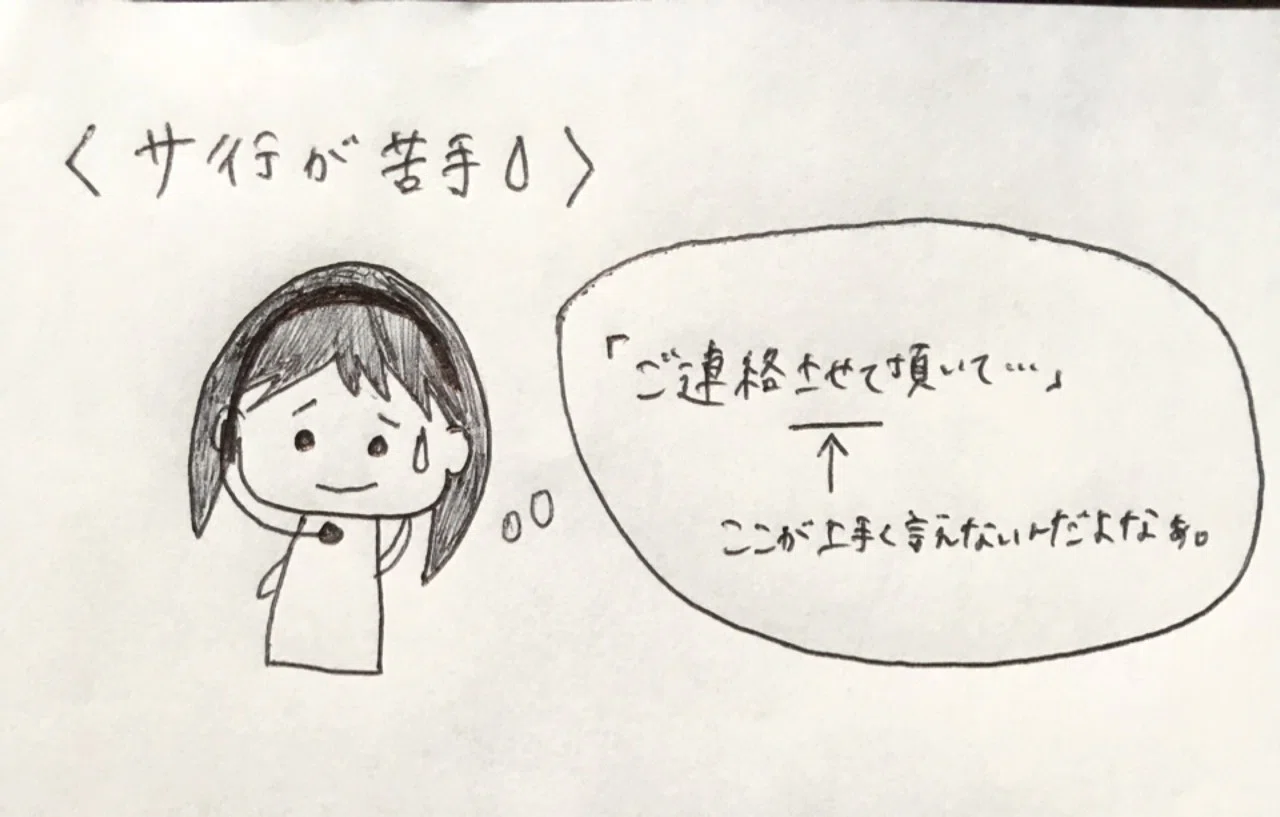 〈サ行が苦手〉
「ご連絡させて頂いて…」
ここが上手く言えないんだよなぁ。